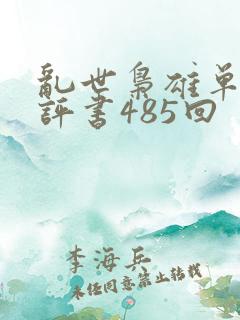 亂世梟雄单
評書485回
李海兵
未经同意禁止转载